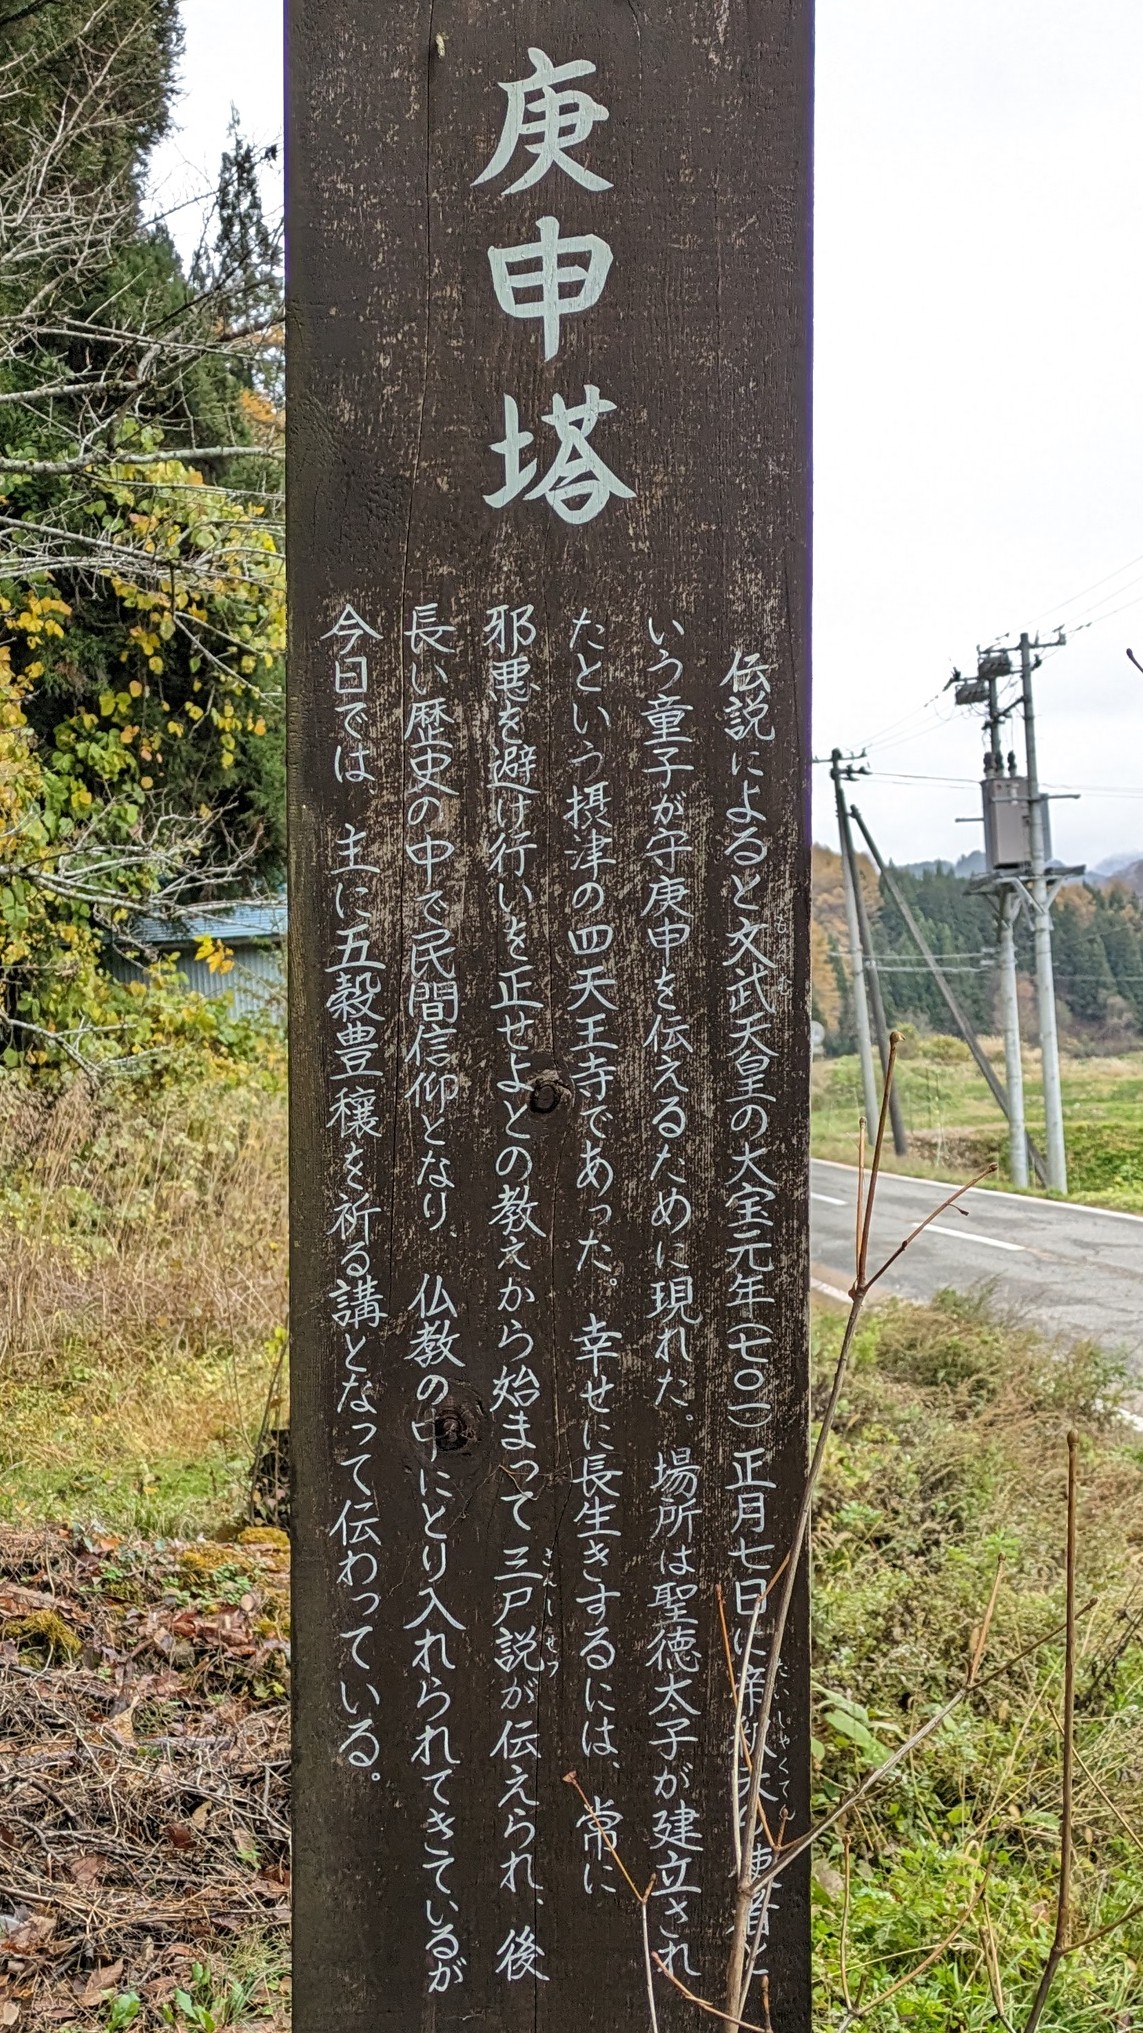 庚申塔
伝説によると文武天皇の大宝元年(七〇一)正月七日に帝釈天の使者と
いう童子が守庚申を伝えるために現れた。場所は聖徳太子が建立され
たという摂津の四天王寺であった。幸せに長生きするには、常に
邪悪を避け行いを正せよとの教えから始まって三尸説が伝えられ、後
さんしせつ
長い歴史の中で民間信仰となり、仏教の中にとり入れられてきているが
今日では、主に五穀豊穣を祈る講となって伝わっている。